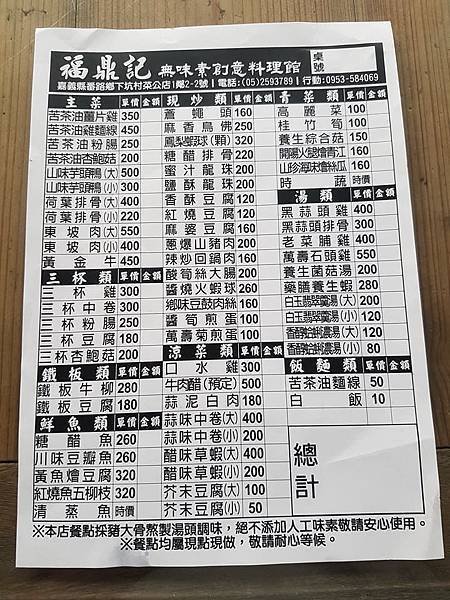 福鼎記 無味素創意料理館
桌號
嘉義縣番路鄉下坑村菜公店1鄰2-2號 電話:(05)2593789 行動:0953-584069
主菜 單價 金額
苦茶油薑片雞 350
苦茶油雞麵線 450
苦茶油粉腸 250
苦茶油杏鮑菇 200
山味芋頭鴨(大) 500
山味芋頭鴨(小) 300
荷葉排骨(大) 400
荷葉排骨(小) 220
東坡肉(大) 500
東坡肉(小) 400
黃金牛 450
三杯類 單價 金額
三杯雞 300
三杯中卷 300
三杯粉腸 250
三杯豆腐 180
三杯杏鮑菇 200
鐵板類 單價 金額
鐵板牛柳 280
鐵板豆腐 180
鮮魚類 單價 金額
糖醋魚 260
川味豆瓣魚 260
黃魚燴豆腐 320
紅燒魚五柳枝 320
清蒸魚 時價
現炒類 單價 金額
蒼蠅頭 160
麻香鳥佛 250
鳳梨蝦球(顆) 320
糖醋排骨 220
蜜汁龍珠 200
鹽酥龍珠 200
香酥豆腐 120
紅燒豆腐 120
麻婆豆腐 160
蔥爆山豬肉 200
辣炒回鍋肉 160
酸筍絲大腸 200
醬燒火蝦球 260
鄉味豆豉肉絲 160
醬筍煎蛋 100
萬壽菊煎蛋 100
涼菜類 單價 金額
口水雞 300
牛肉醋(預定) 500
蒜泥白肉 180
蒜味中卷(大) 400
蒜味中卷(小) 200
醋味草蝦(大) 400
醋味草蝦(小) 200
芥末豆腐(大) 100
芥末豆腐(小) 50
青菜類 單價 金額
高麗菜 100
桂竹筍 100
養生綜合菇 150
開陽火腿燴青江 160
山珍海味燴絲瓜 160
時蔬 時價
湯類 單價 金額
黑蒜頭雞 400
黑蒜頭排骨 300
老菜脯雞 400
萬壽石頭雞 550
養生菌菇湯 200
藥膳養生蝦 280
白玉翡翠羹湯(大) 200
白玉翡翠羹湯(小) 120
香醇蛤蜊濃湯(大) 120
香醇蛤蜊濃湯(小) 80
飯麵類 單價 金額
苦茶油麵線 50
白飯 10
總計
※本店餐點採豬大骨熬製湯頭調味,絕不添加人工味素敬請安心使用。
※餐點均屬現點現做,敬請耐心等候。